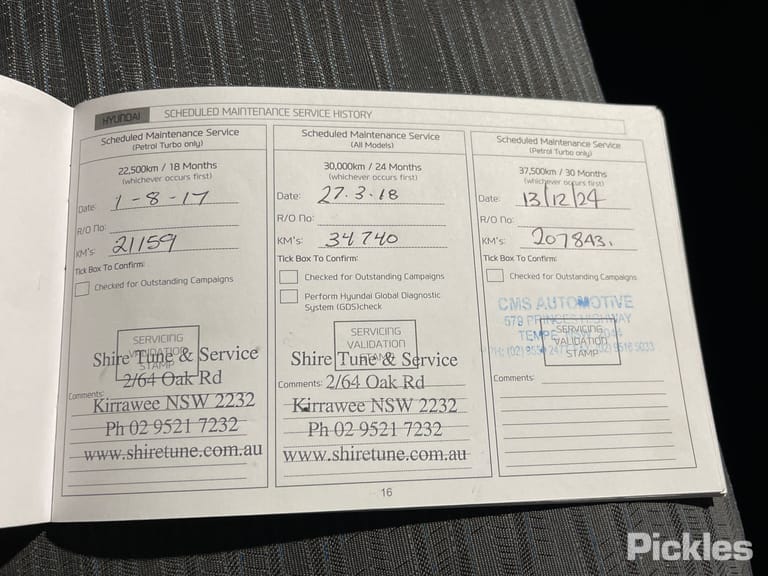 HYUNDAI SCHEDULED MAINTENANCE SERVICE HISTORY
Scheduled Maintenance Service
(Petrol Turbo only)
22,500km / 18 Months
(whichever occurs first)
Date: 1-8-17
R/O No:
KM's: 21159
Tick Box To Confirm:
Checked for Outstanding Campaigns
SERVICING
VALIDATION
STAMP
Shire Tune & Service
2/64 Oak Rd
Comments:
Kirrawee NSW 2232
Ph 02 9521 7232
www.shiretune.com.au
Scheduled Maintenance Service
(All Models)
30,000km / 24 Months
(whichever occurs first)
Date: 27.3.18
R/O No:
KM's: 34740
Tick Box To Confirm:
Checked for Outstanding Campaigns
Perform Hyundai Global Diagnostic
System (GDS)check
SERVICING
VALIDATION
STAMP
Shire Tune & Service
Comments: 2/64 Oak Rd
Kirrawee NSW 2232
Ph 02 9521 7232
www.shiretune.com.au
Scheduled Maintenance Service
(Petrol Turbo only)
37,500km / 30 Months
(whichever occurs first)
Date: 13/12/24
R/O No:
KM's: 207843.
Tick Box To Confirm:
Checked for Outstanding Campaigns
CMS AUTOMOTIVE
579 PRINCES HIGHWAY
SERVICING
TEMPE NSW 2044
VALIDATION
STAMP
PH: (02)
Comments:
16
Pickles